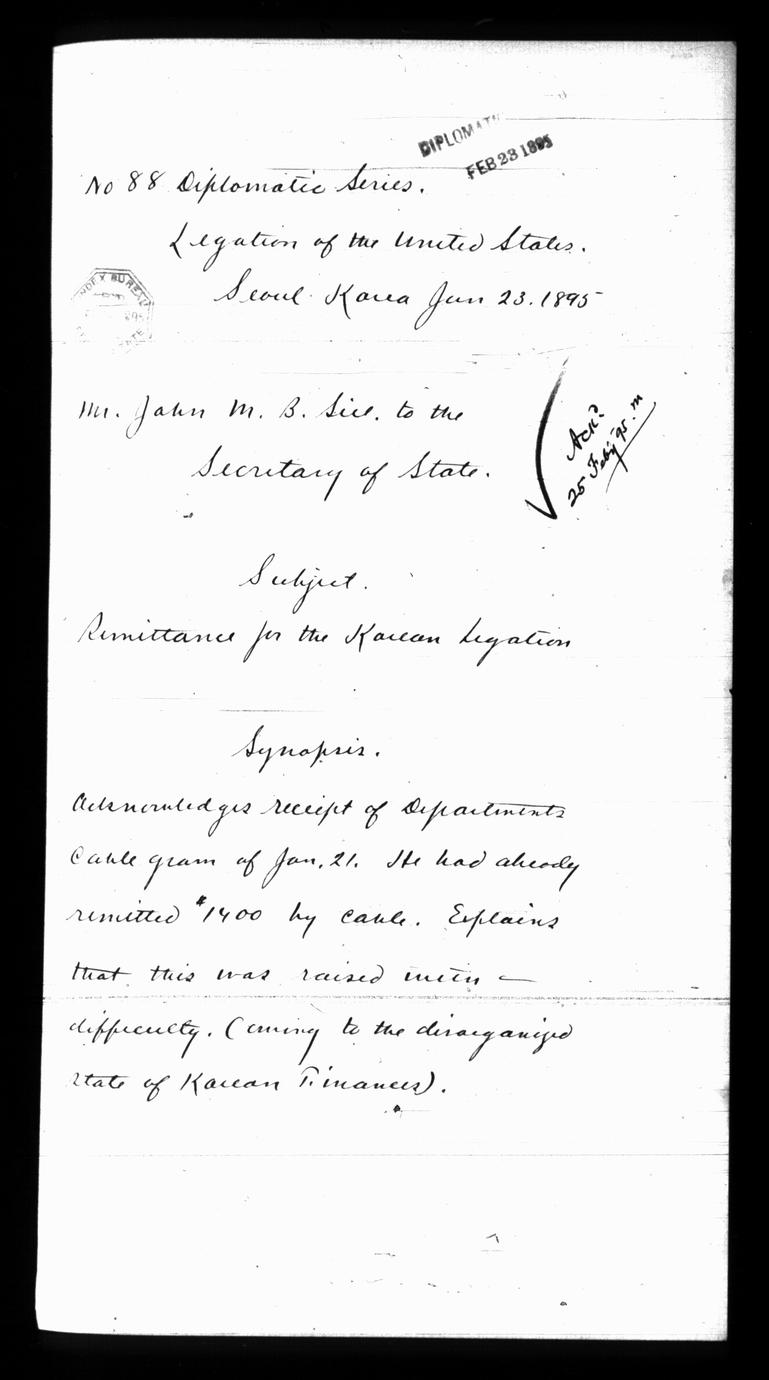 DIPLOMATI
FEB 23 1895
No 88 Diplomatic Series.
Legation of the United States.
Seoul Korea Jan 23. 1895
INDEX BUREAU
Mr. John M. B. Sill. to the
Secretary of State.
Ack'd
25 Feb'y '95. m
Subject.
Remittance for the Korean Legation
Synopsis.
Acknowledges receipt of Departments
Cable gram of Jan. 21. He had already
remitted $1400 by cable. Explains
that this was raised with —
difficulty. (owing to the disorganized
state of Korean Finances).